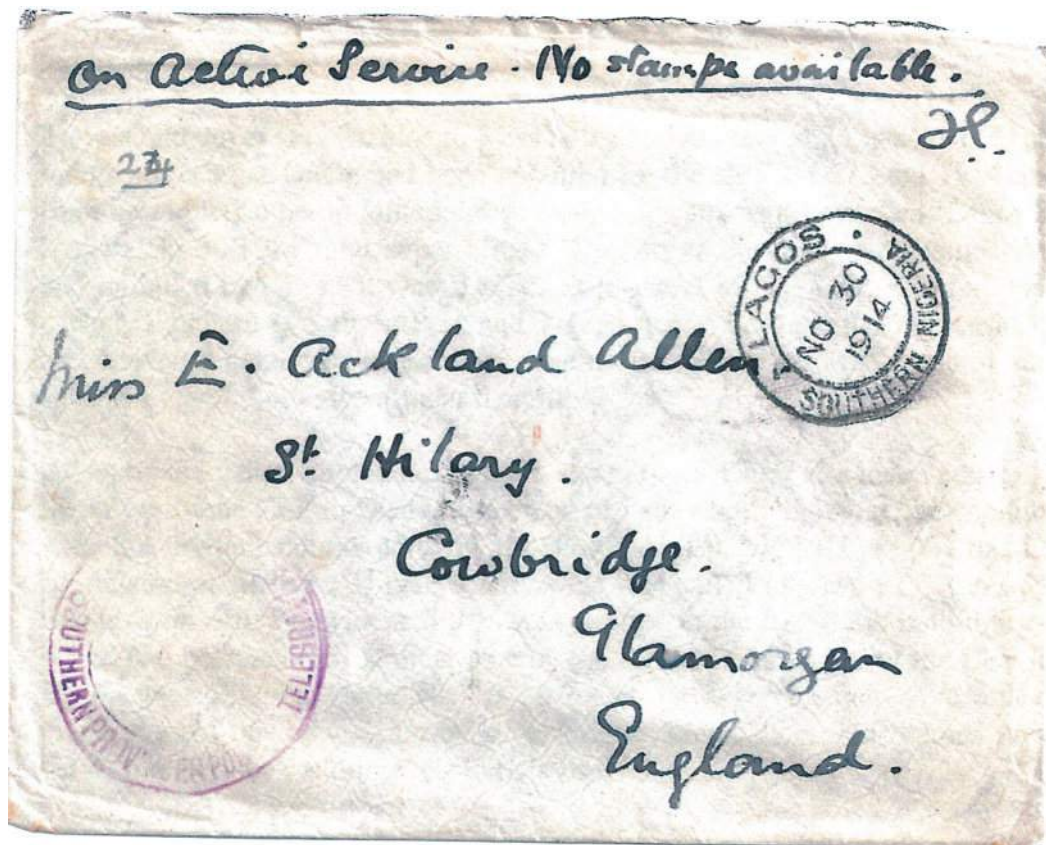 On Active Service. No stamps available.
274
LAGOS · SOUTHERN NIGERIA
NO 30
1914
Miss E. Ackland Allen
St. Hilary.
Cowbridge.
Glamorgan
England.
SOUTHERN TELEGRAPHS